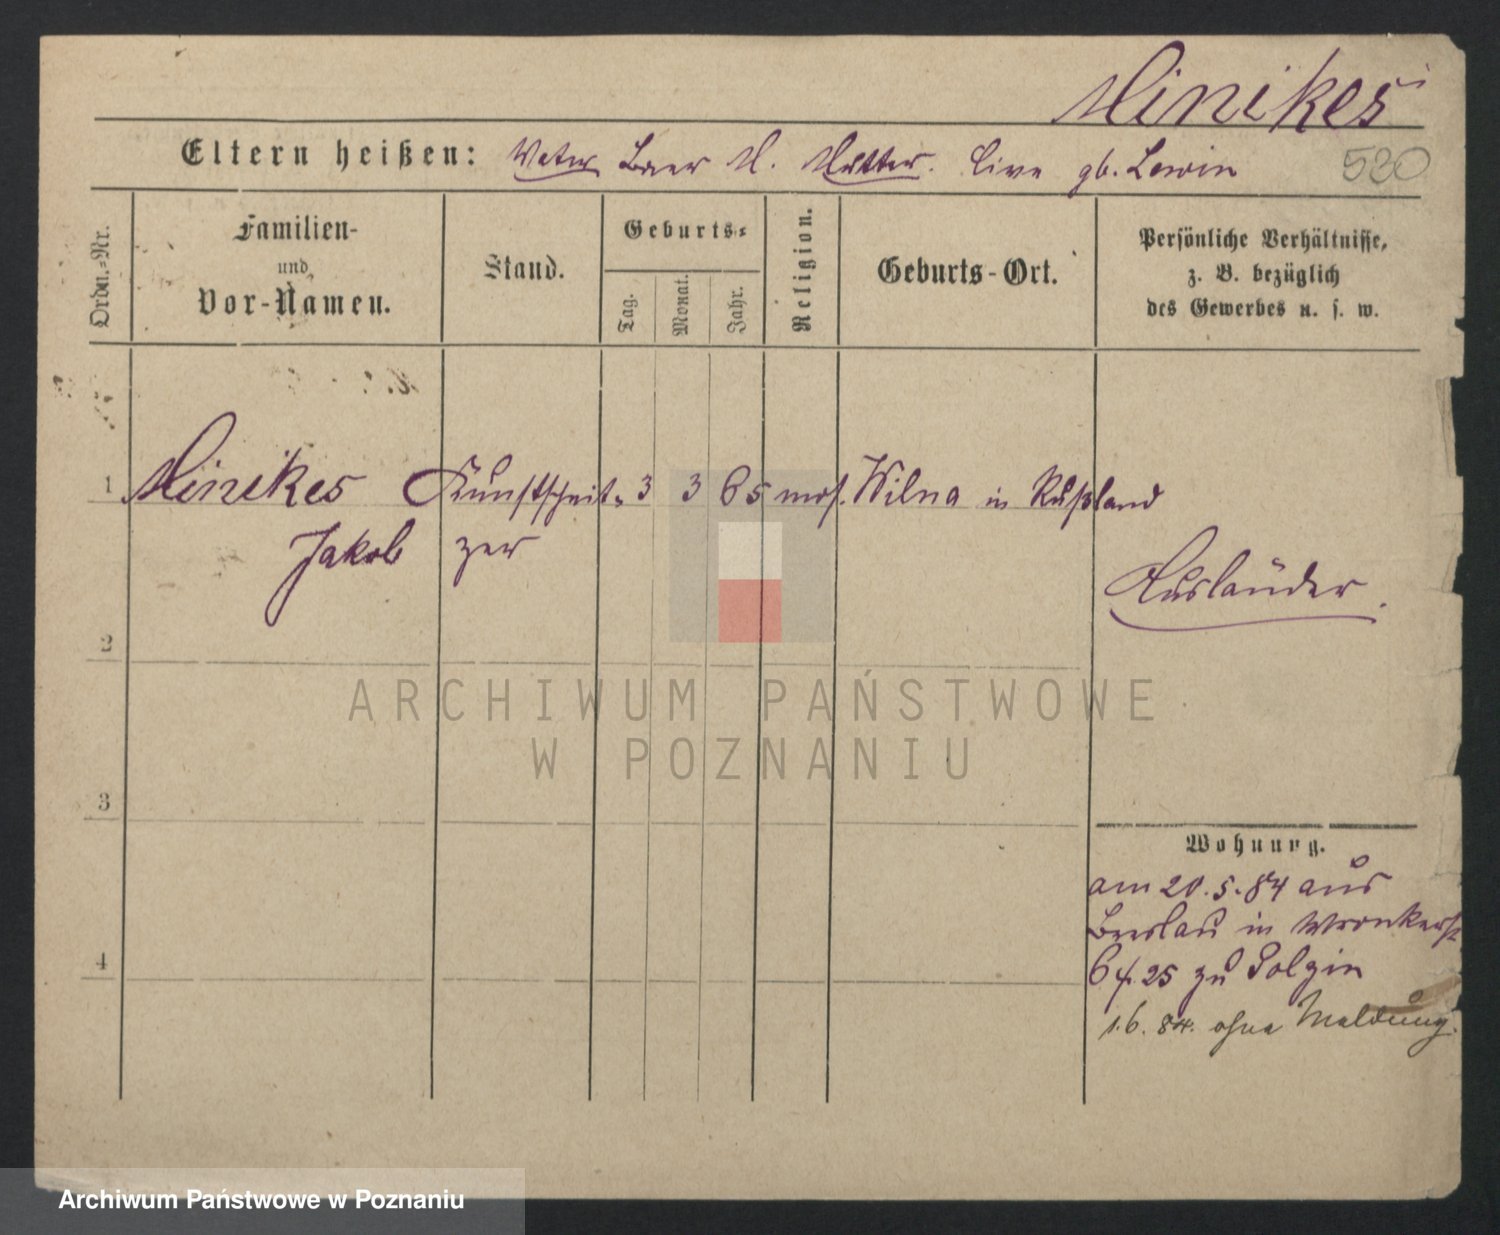 Minikes
Eltern heißen: Vater Baer M. Mutter. Live gb. Lewin 520
Ordn.-Nr.
Familien-
und
Vor-Namen.
Stand.
Geburts-
Tag.
Monat.
Jahr.
Religion.
Geburts-Ort.
Persönliche Verhältnisse,
z. B. bezüglich
des Gewerbes u. s. w.
1 Minikes Kunstschnit- 3 3 65 mos. Wilna in Rußland
Jakob zer
Ausländer.
2
ARCHIWUM PAŃSTWOWE
W POZNANIU
3
Wohnung.
am 20.5.84 aus
Breslau in Wronkerst
6/7.25 zu Polzin
4
1.6.84. ohne Meldung.
Archiwum Państwowe w Poznaniu